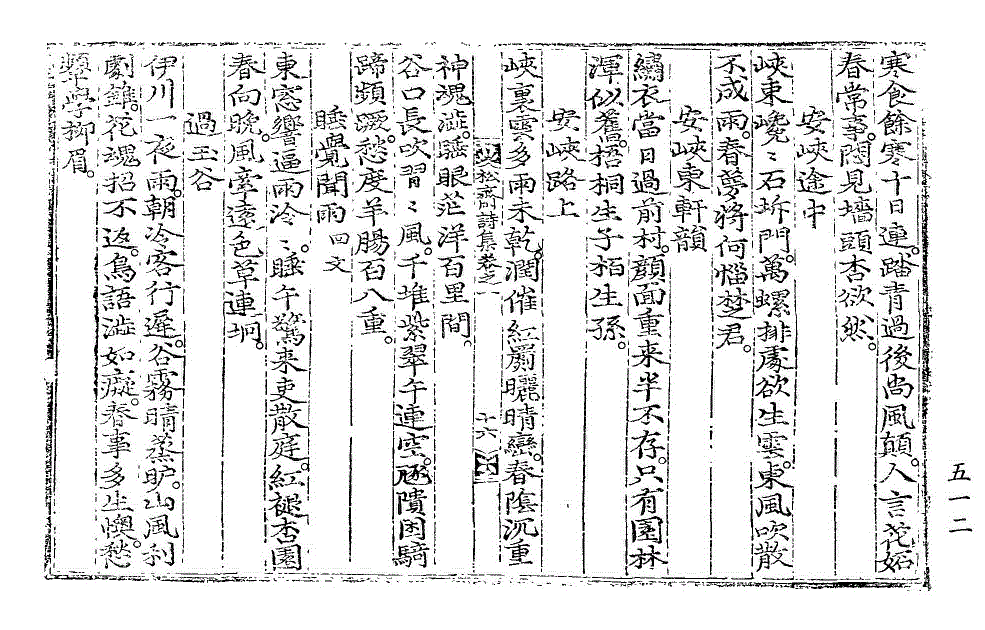 寒食餘寒十日連。踏青過後尚風顛。人言花妬
春常事。閱見墻頭杏欲然。
安峽途中
峽束巉〻石坼門。萬螺排處欲生雲。東風吹散
不成雨。春夢將何惱楚君。
安峽東軒韻
繡衣當日過前村。顏面重來半不存。只有園林
渾似舊。梧桐生子栢生孫。
安峽路上
峽裏雲多雨未乾。潤催紅麝曬晴巒。春陰沉重
松齋詩集卷之一
十六
神魂澁。睡眼茫洋百里間。
谷口長吹習〻風。千堆紫翠午連空。𨓏隤困騎
蹄頻蹶。愁度羊腸百八重。
睡覺聞雨 回文
東窓響逼雨冷〻。睡午驚来吏散庭。紅褪杏園
春向晚。風牽遠色草連坰。
過玉谷
伊川一夜雨。朝冷客行遲。谷霧晴蒸旷。山風利
劇錐。花魂招不返。鳥語澁如癡。春事多生懊。愁
顰學柳眉。
五一二